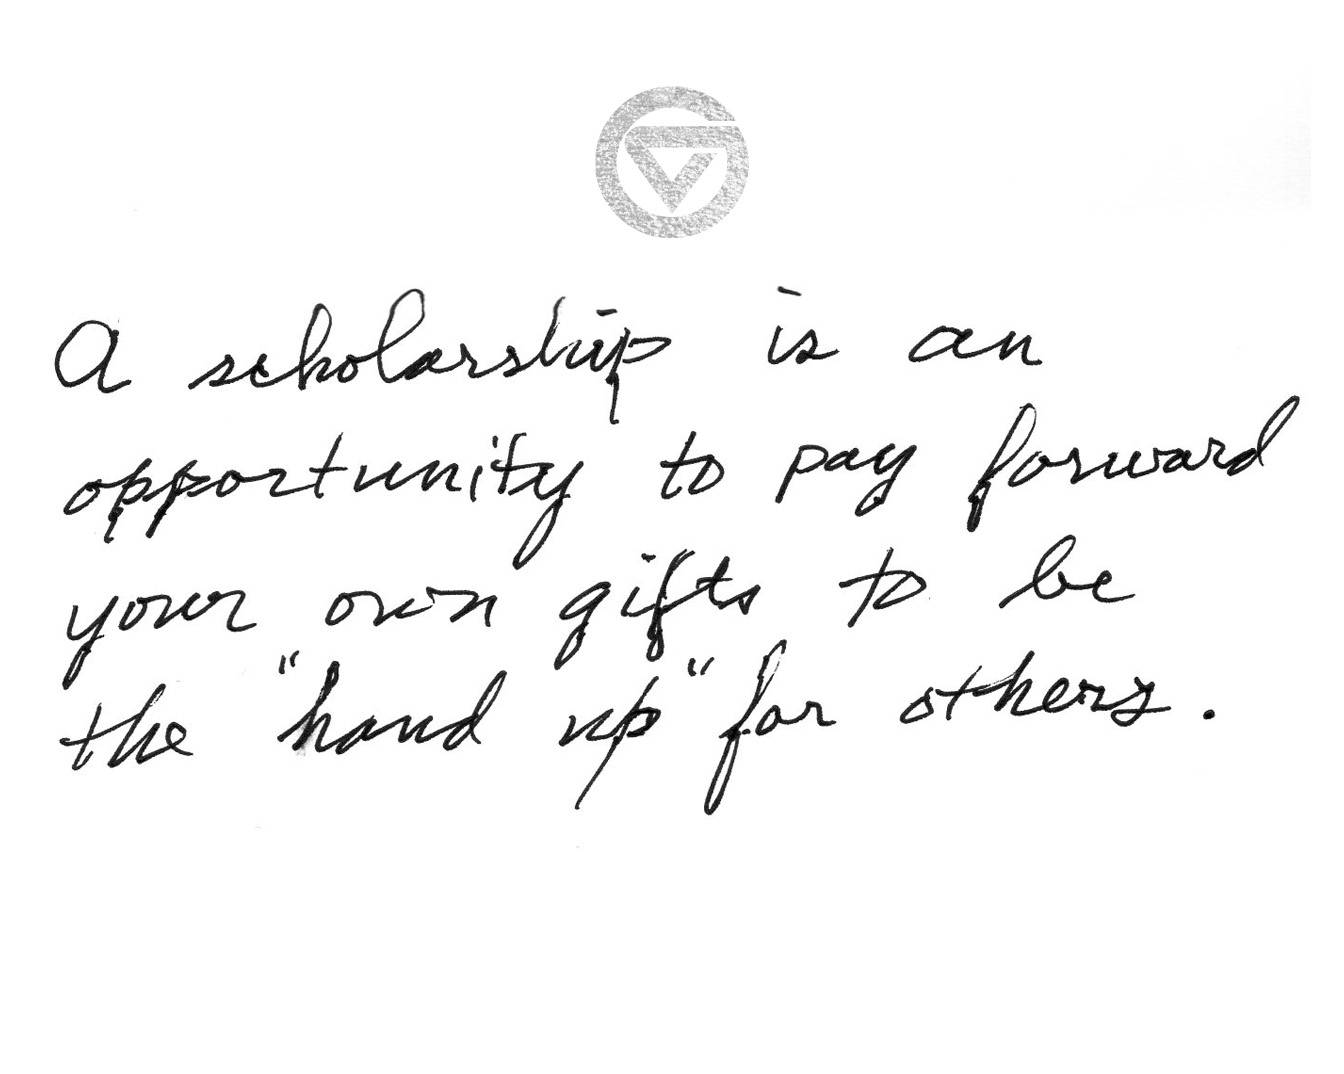 A scholarship is an
opportunity to pay forward
your own gifts to be
the "hand up" for others.